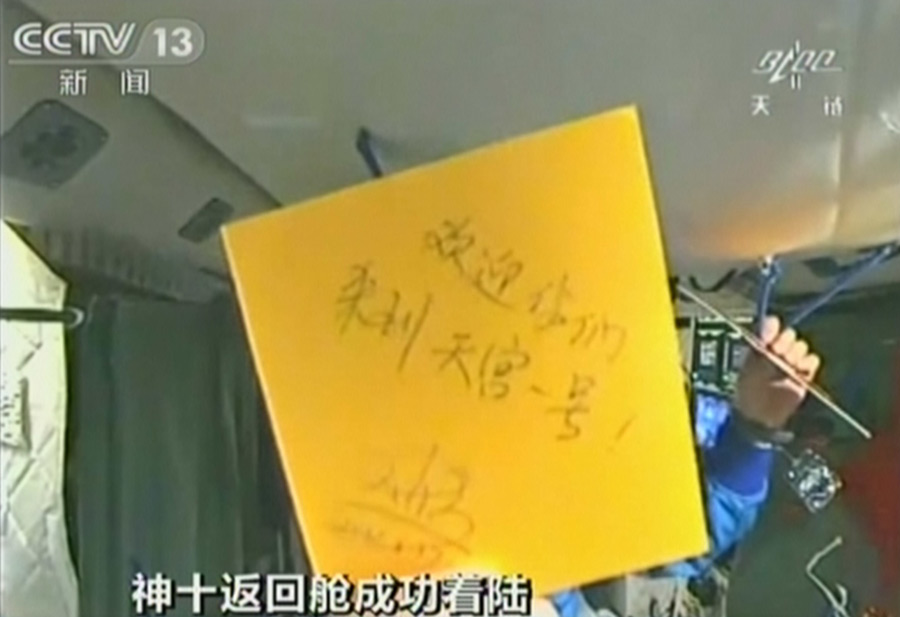 CCTV 13
新闻
BACC
欢迎你们
来到天宫一号！
神十返回舱成功着陆